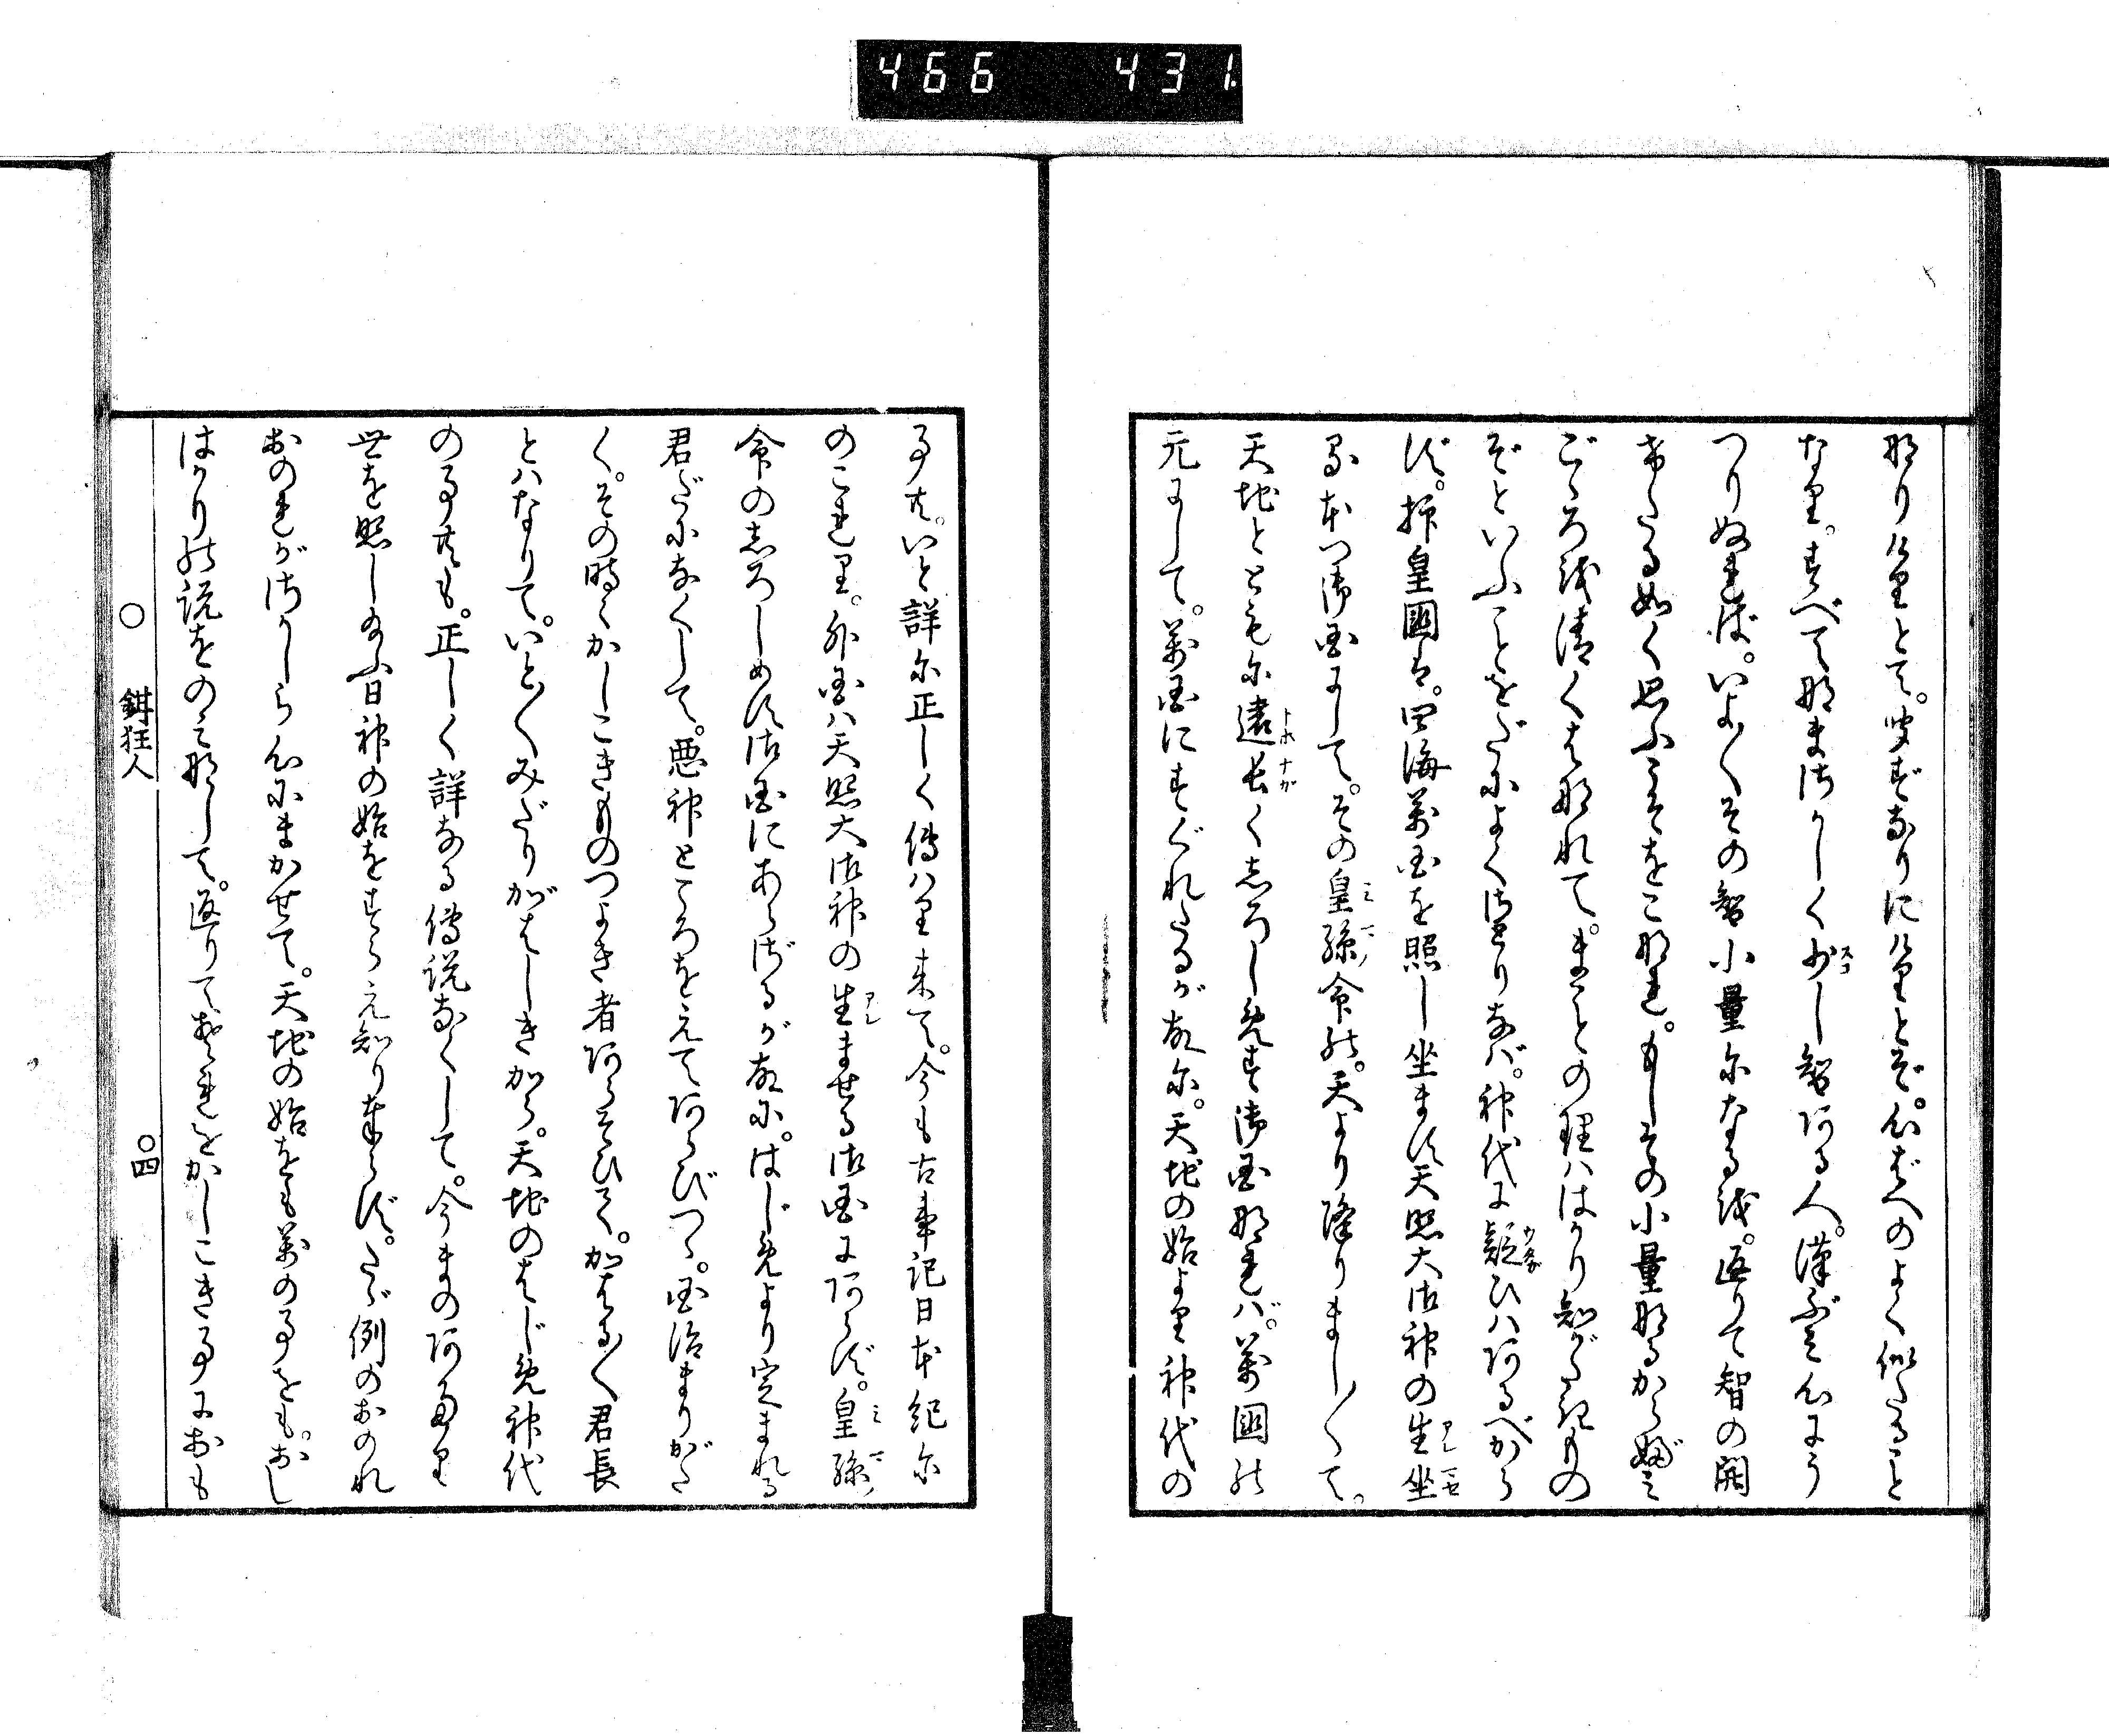 なりけりとて。ずなりにけりとぞ。心ばへのよく似たること
なり。すべてなまさかしく少し智ある人。漢ぶみ心にう
つりぬれば。いよ〱その智小量になるを。返りて智の開
けたる如く思ふこそをこなれ。もしその小量なるからぶみ
ごゝろを清くはなれて。まことの理ははかり知がたきもの
ぞといふことをだによくさとりなば。神代に疑ひはあるべから
ず。抑皇國は。四海萬国を照し坐ます天照大御神の生坐
る本つ御国にして。その皇孫命の。天より降りまし〱て。
天地とともに遠長くしろしめす御国なれば。萬國の
元にして。萬国にすぐれたるが故に。天地の始より神代の
事共。いと詳に正しく傳はり来て。今も古事記日本紀に
のこれり。外国は天照大御神の生ませる御国にあらず。皇孫
命のしろしめす御国にあらざるが故に。はじめより定まれる
君だになくして。悪神ところをえてあらびつゝ。国治まりがた
く。その時〻かしこきものつよき者あらそひて。かはる〱君長
とはなりて。いと〱みだりがはしきから。天地のはじめ神代
の事共も。正しく詳なる傳説なくして。今まのあたり
世を照し給ふ日神の始をすらえ知り奉らず。たゞ例のおのれ
おのれがさかしら心にまかせて。天地の始をも萬の事をも。おし
はかりの説をのみなして。返りてそれをかしこき事におも
○ 鉗狂人 ○四
466 431